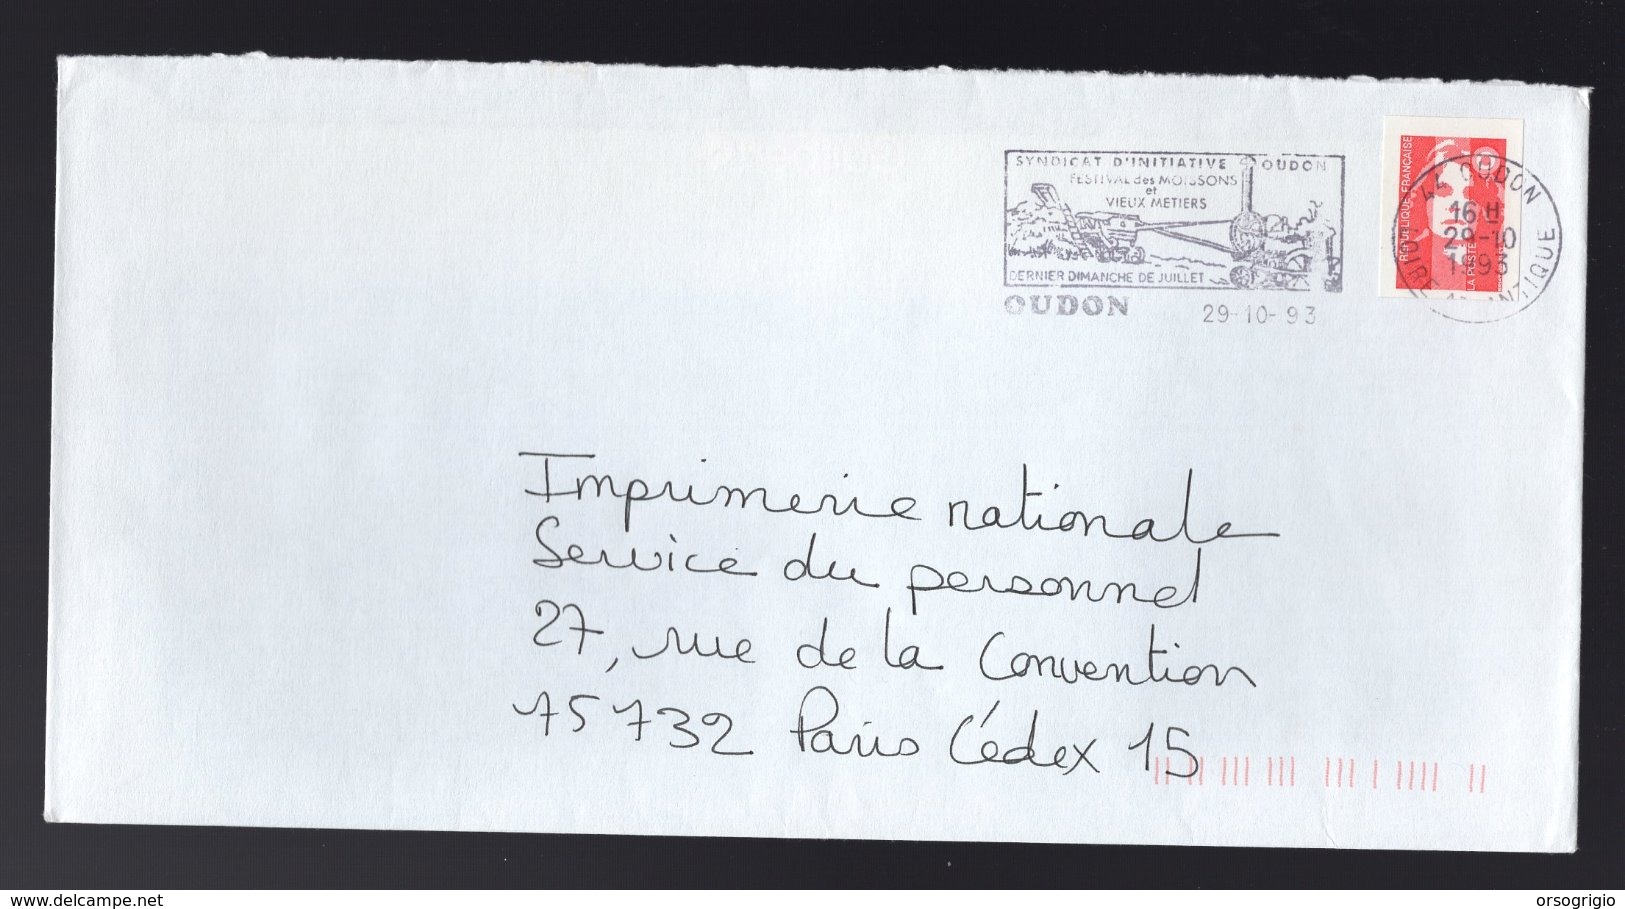 SYNDICAT D'INITIATIVE OUDON
FESTIVAL des MOISSONS
et
VIEUX METIERS
DERNIER DIMANCHE DE JUILLET
OUDON 29-10-93
RÉPUBLIQUE FRANÇAISE
LA POSTE
44 OUDON
16 H
29-10
1993
LOIRE ATLANTIQUE
Imprimerie nationale
Service du personnel
27, rue de la Convention
75732 Paris Cédex 15
delcampe.net
orsogrigio